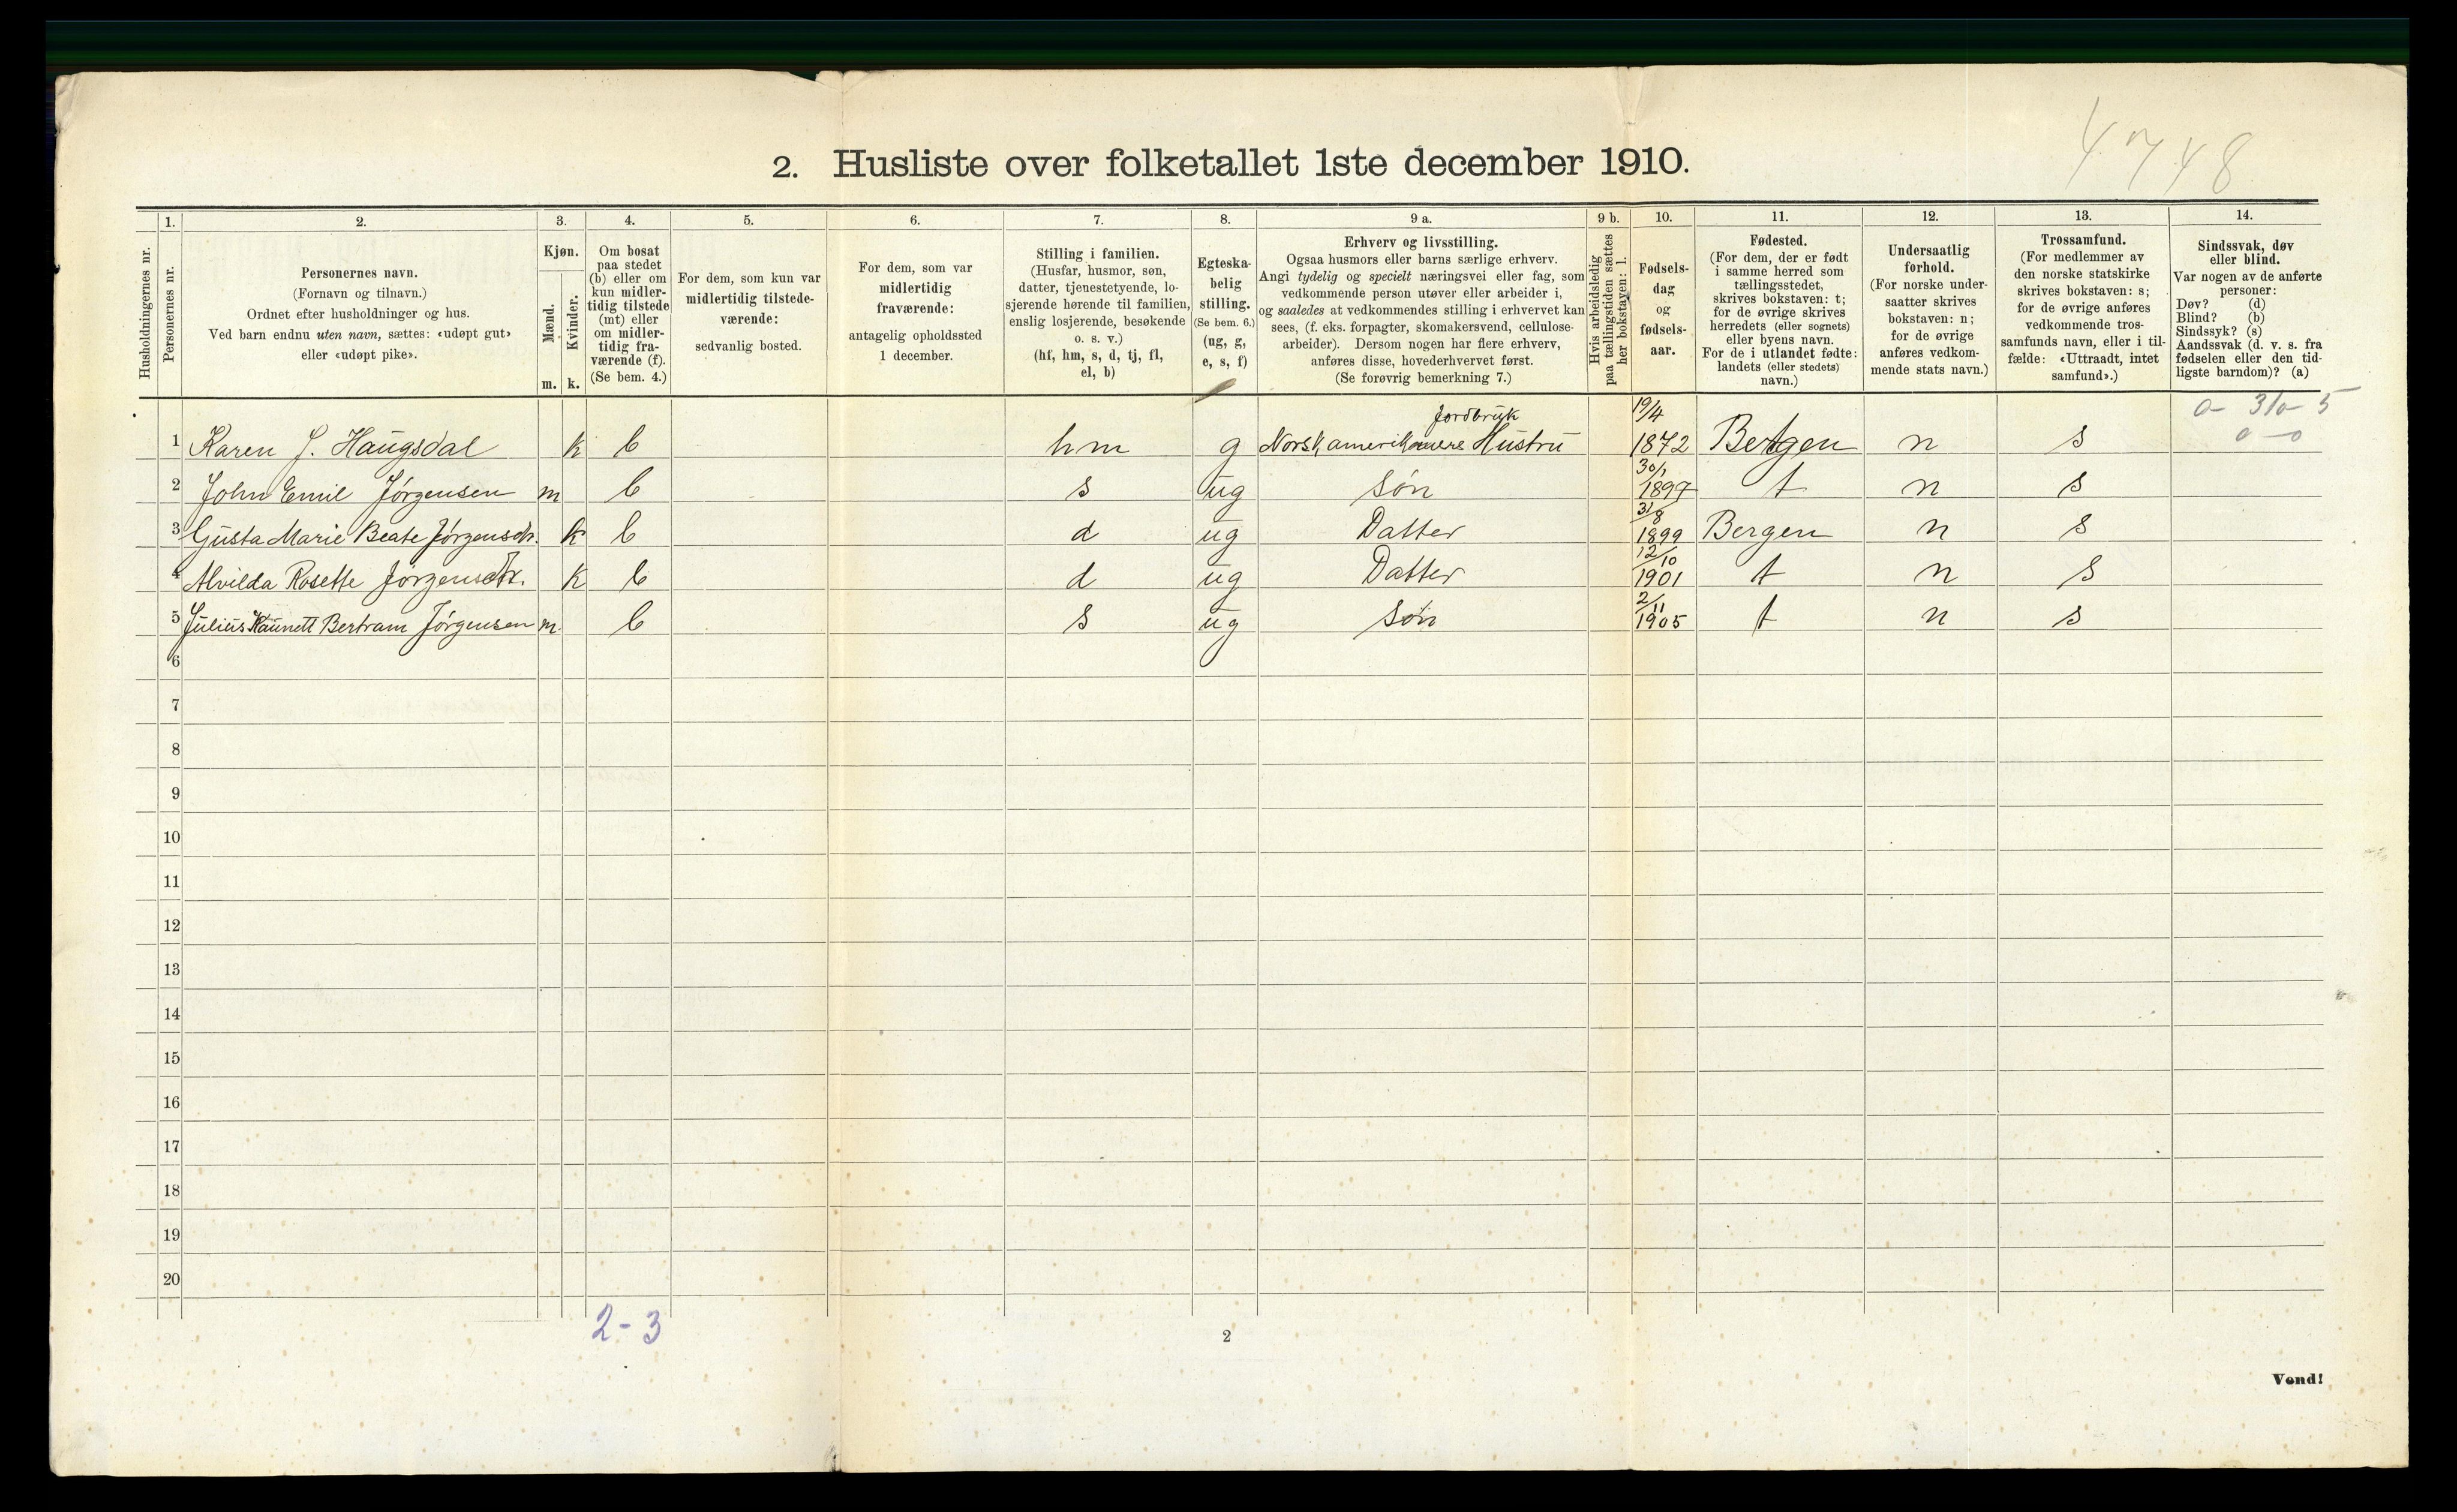 4748
2. Husliste over folketallet 1ste december 1910.
Husholdningernes nr.
1.
Personernes nr.
2.
Personernes navn.
(Fornavn og tilnavn.)
Ordnet efter husholdninger og hus.
Ved barn endnu uten navn, sættes: «udøpt gut»
eller «udøpt pike».
3.
Kjøn.
Mænd.
Kvinder.
m. k.
4.
Om bosat
paa stedet
(b) eller om
kun midler-
tidig tilstede
(mt) eller
om midler-
tidig fra-
værende (f).
(Se bem. 4.)
5.
For dem, som kun var
midlertidig tilstede-
værende:
sedvanlig bosted.
6.
For dem, som var
midlertidig
fraværende:
antagelig opholdssted
1 december.
7.
Stilling i familien.
(Husfar, husmor, søn,
datter, tjenestetyende, lo-
sjerende hørende til familien,
enslig losjerende, besøkende
o. s. v.)
(hf, hm, s, d, tj, fl,
el, b)
8.
Egteska-
belig
stilling.
(Se bem. 6.)
(ug, g,
e, s, f)
9 a.
Erhverv og livsstilling.
Ogsaa husmors eller barns særlige erhverv.
Angi tydelig og specielt næringsvei eller fag, som
vedkommende person utøver eller arbeider i,
og saaledes at vedkommendes stilling i erhvervet kan
sees, (f. eks. forpagter, skomakersvend, cellulose-
arbeider). Dersom nogen har flere erhverv,
anføres disse, hovederhvervet først.
(Se forøvrig bemerkning 7.)
9 b.
Hvis arbeidsledig
paa tællingstiden sættes
her bokstaven: l.
10.
Fødsels-
dag
og
fødsels-
aar.
11.
Fødested.
(For dem, der er født
i samme herred som
tællingsstedet,
skrives bokstaven: t;
for de øvrige skrives
herredets (eller sognets)
eller byens navn.
For de i utlandet fødte:
landets (eller stedets)
navn.)
12.
Undersaatlig
forhold.
(For norske under-
saatter skrives
bokstaven: n;
for de øvrige
anføres vedkom-
mende stats navn.)
13.
Trossamfund.
(For medlemmer av
den norske statskirke
skrives bokstaven: s;
for de øvrige anføres
vedkommende tros-
samfunds navn, eller i til-
fælde: «Uttraadt, intet
samfund».)
14.
Sindssvak, døv
eller blind.
Var nogen av de anførte
personer:
Døv? (d)
Blind? (b)
Sindssyk? (s)
Aandssvak (d. v. s. fra
fødselen eller den tid-
ligste barndom)? (a)
Jordbruk 19/4
1 Karen J. Haugsdal k b hm g Norsk amerikaners Hustru 1872 Bergen n s
30/1
2 John Emil Jørgensen m b s ug Søn 1897 t n s
31/8
3 Gusta Marie Beate Jørgensdtr. k b d ug Datter 1899 Bergen n s
12/10
4 Alvilda Rosette Jørgensdtr. k b d ug Datter 1901 t n s
2/11
5 Julius Bertram Jørgensen m b s ug Søn 1905 t n s
6
7
8
9
10
11
12
13
14
15
16
17
18
19
20
2-3
2
Vend!